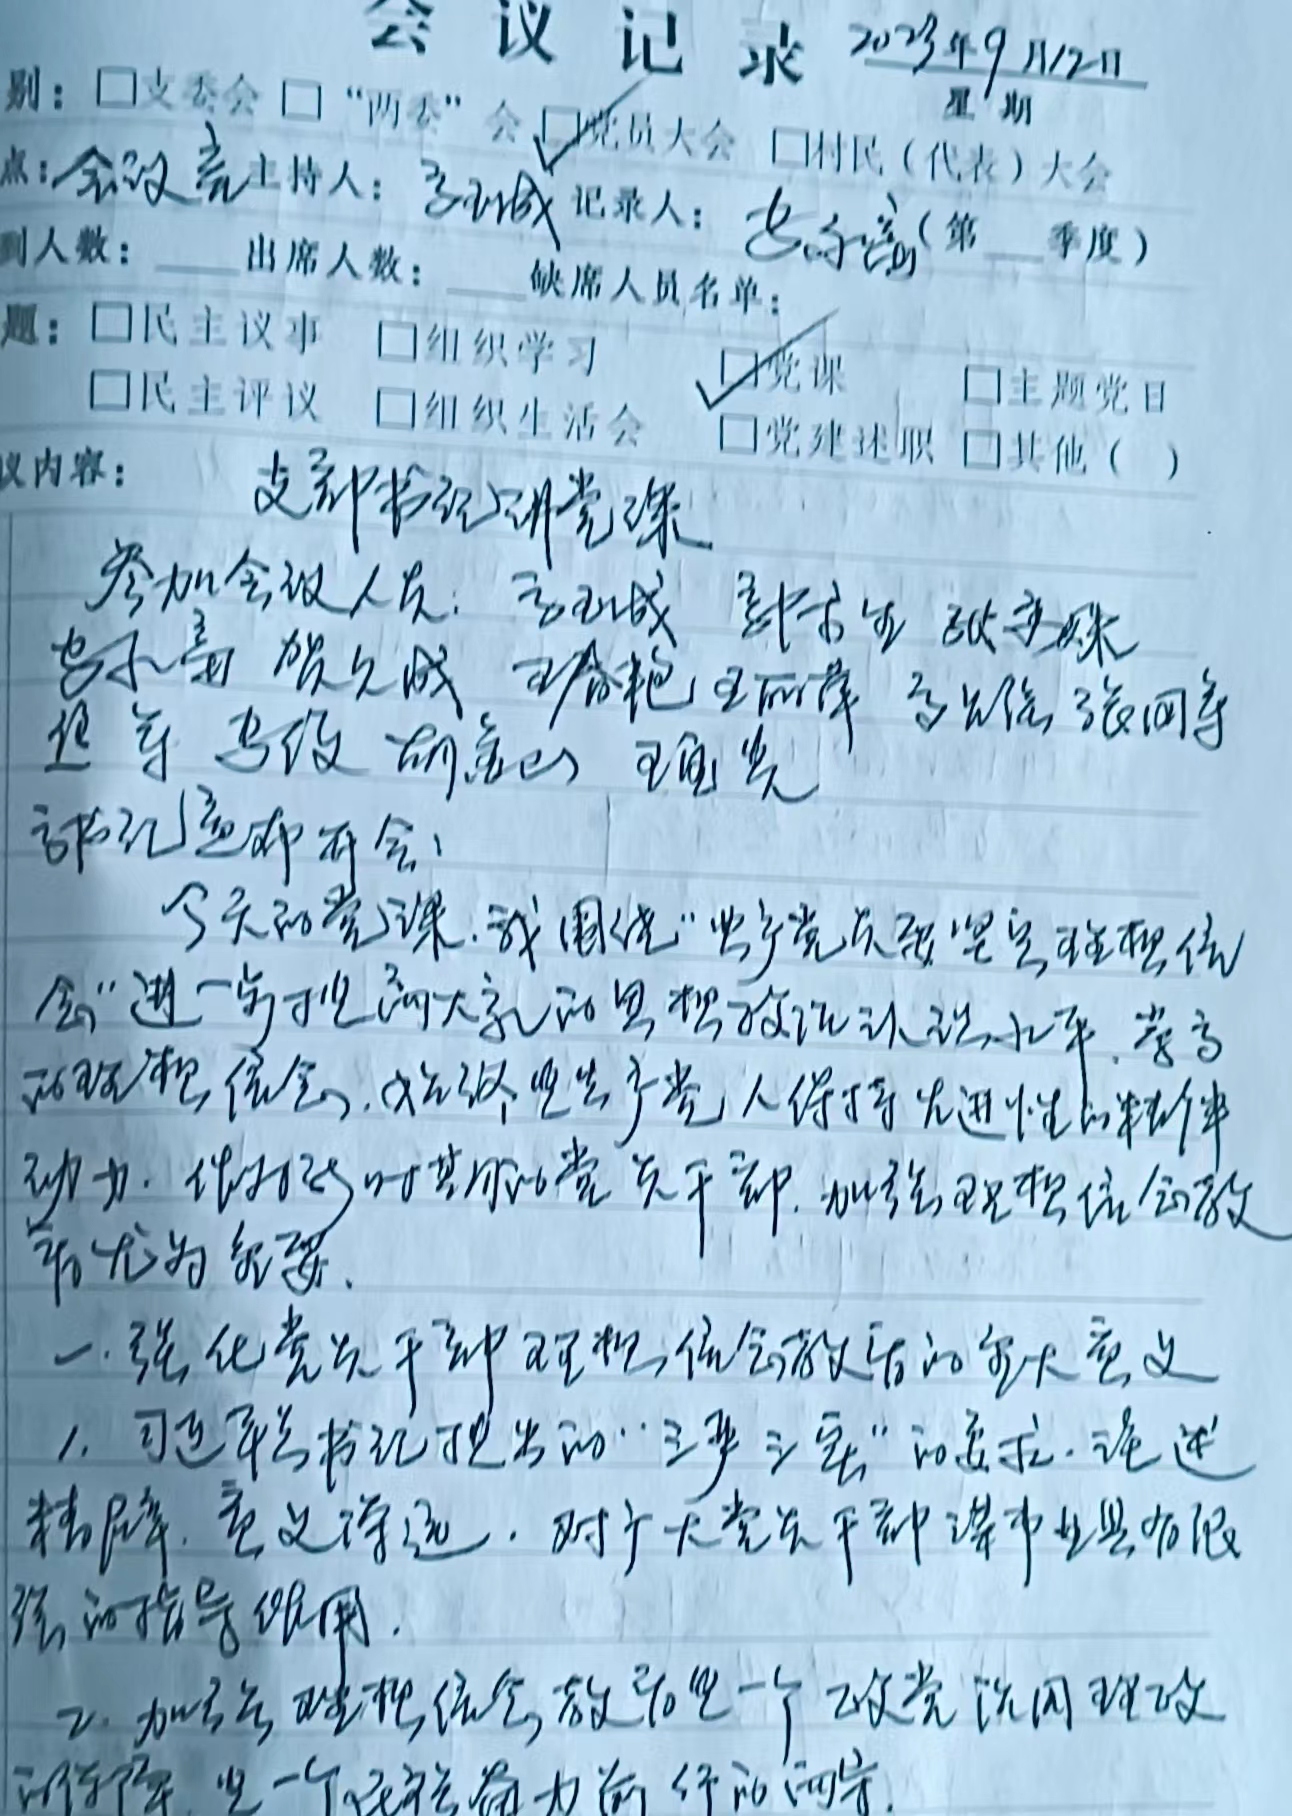 会议记录 2023年9月12日
星期
别：□支委会 □“两委”会 ☑党员大会 □村民（代表）大会
点：会议室 主持人： 记录人： （第__季度）
到人数：____ 出席人数：____ 缺席人员名单：
题：□民主议事 □组织学习 ☑党课 □主题党日
□民主评议 □组织生活会 □党建述职 □其他（ ）
议内容：
支部书记讲党课
参加会议人员：
贺久成 王春艳 王丽萍
马俊 胡金山
书记宣布开会：
今天的党课，我围绕“共产党员要坚定理想信
念”进一步提高大家的思想政治认识水平，崇高
的理想信念，始终是共产党人保持先进性的精神
动力．作为新时期的党员干部，加强理想信念教
育尤为重要．
一．强化党员干部理想信念教育的重大意义
1．习近平总书记提出的“三严三实”的要求．论述
精辟，意义深远．对广大党员干部谋事业具有很
强的指导作用．
2．加强理想信念教育是一个政党治国理政
的 是一个民族奋力前行的